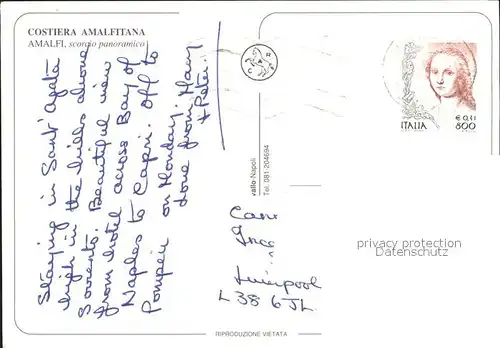 COSTIERA AMALFITANA
AMALFI, scorcio panoramico
Staying in Sant' Agata
high in the hills above
Sorrento. Beautiful view
from hotel across Bay of
Naples to Capri. Off to
Pompeii on Monday.
Love from Mary
+ Peter.
vallo-Napoli
Tel. 081-204694
€ 0,41
ITALIA 800
Liverpool
L38 6JL
privacy protection
Datenschutz
RIPRODUZIONE VIETATA